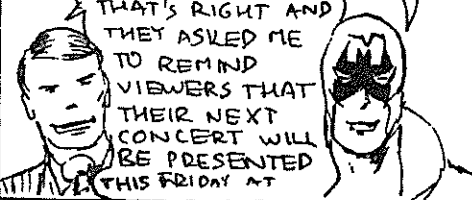 THAT'S RIGHT AND
THEY ASKED ME
TO REMIND
VIEWERS THAT
THEIR NEXT
CONCERT WILL
BE PRESENTED
THIS FRIDAY AT